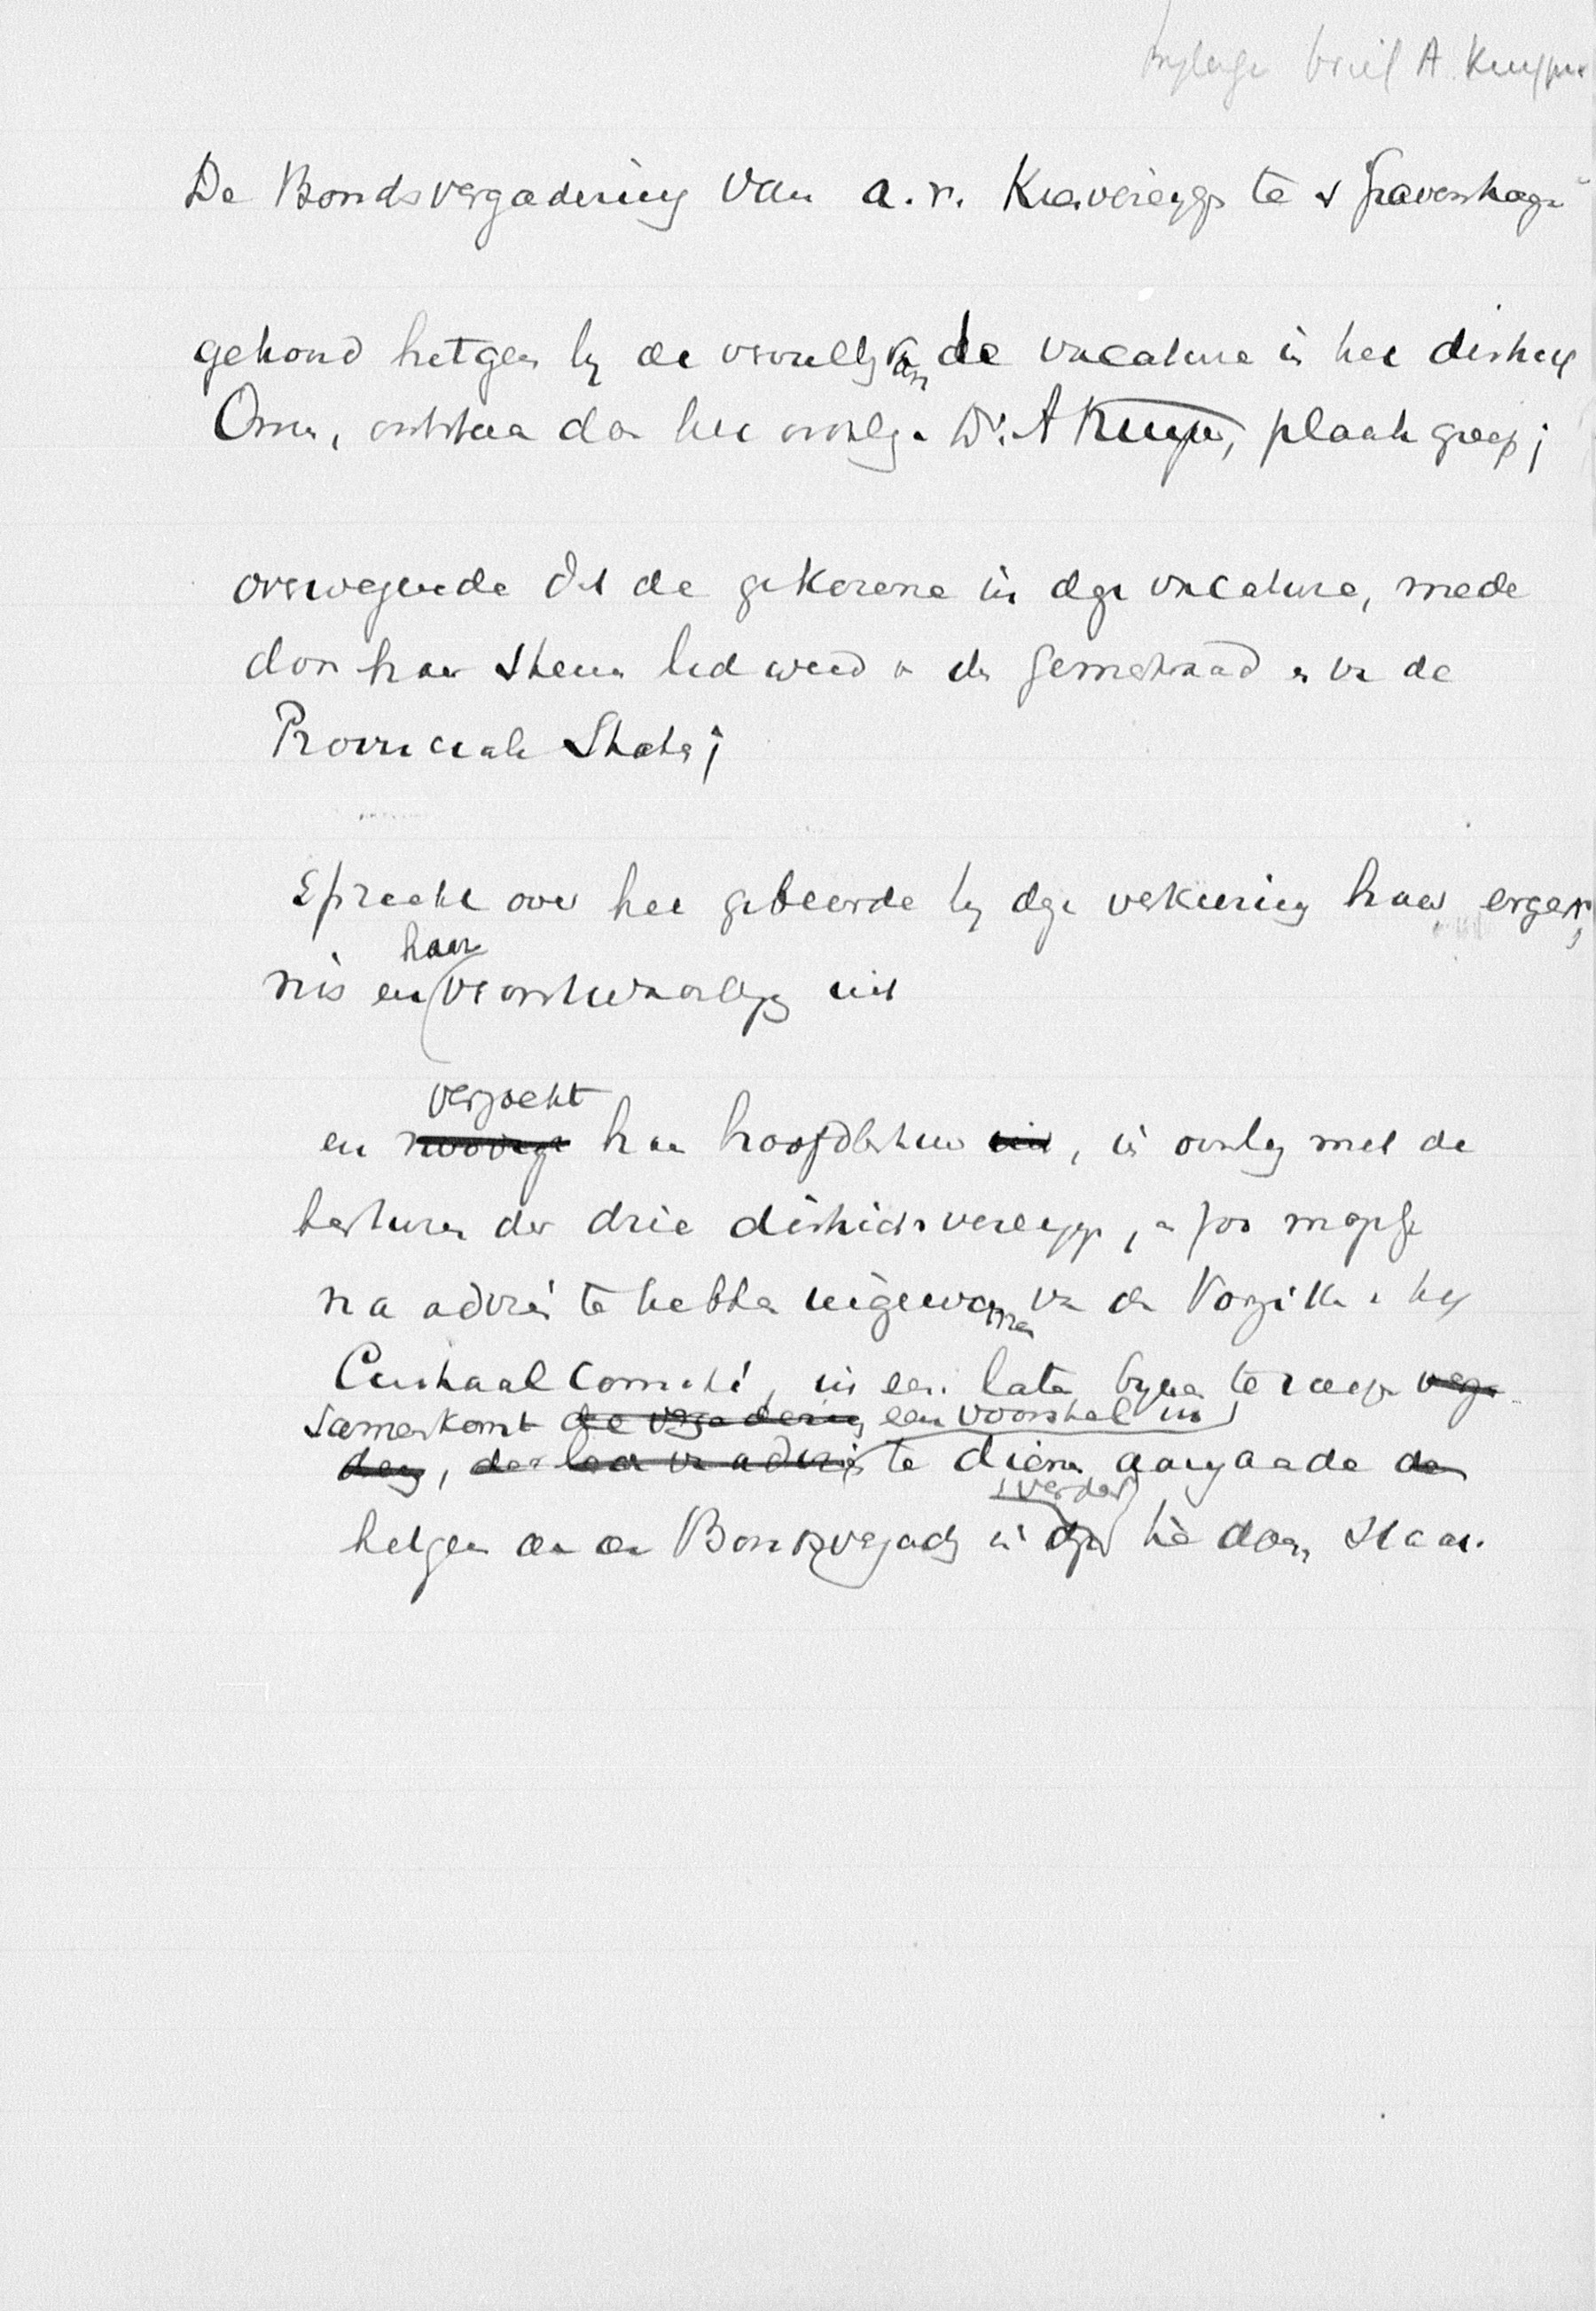 bijlage brief A. Kuyper
De Bondsvergadering van a. r. Kiesvereengg te s Gravenhage
gehoord hetgeen bij de vervulling van de vacature in het district
Ommen, ontstaan door het overlijden Dr. A Kuyper, plaats greep;
overwegende dat de gekozene in deze vacature, mede
door haar steun lid werd van den Gemeenteraad en van de
Provinciale Staten;
Spreekt over het gebeurde bij deze verkiezing haar erger-
nis en haar verontwaardiging uit
en noodigt verzoekt haar hoofdbestuur uit, in overleg met de
besturen der drie districtsvereengg, en zoo mogelijk
na advies te hebben ingewonnen van den Voorzitter van het
Centraal Comité, in een later bijeen te roepen verga-
samenkomst de vergadering een voorstel in
dering, deze van advies te dienen aangaande de
hetgeen de Bondsvergadg in deze verder te doen staat.